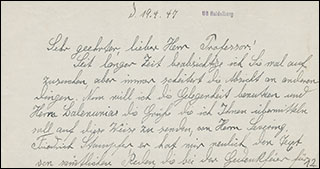 19.9.47
UB Heidelberg
Sehr geehrter, lieber Herr Professor!
Seit langer Zeit beabsichtige ich Sie mal auf
zusuchen aber immer scheitert die Absicht an anderen
Dingen. Nun will ich die Gelegenheit benutzen und
Herrn die Grüße die ich Ihnen übermitteln
soll auf diese Weise zu senden, von Herrn
Friedrich Stampfer er hat mir neulich den Text
der Reden die bei der Gedenkfeier für
72